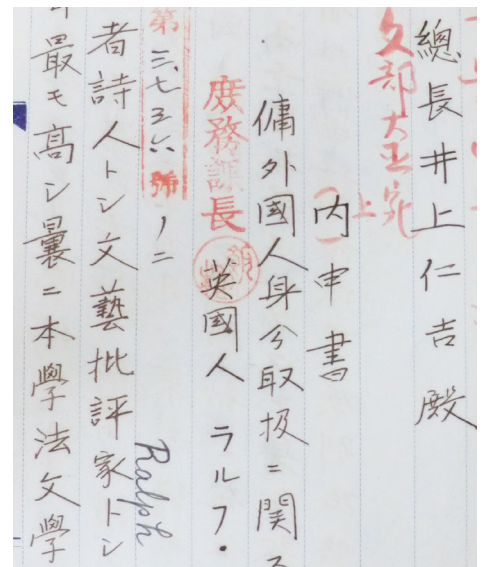 總長井上仁吉殿
文部大臣宛
上
内申書
傭外國人身分取扱ニ関ス
庶務課長
英國人 ラルフ・
Ralph
第三七三六號ノ二
者詩人トシ文藝批評家トシ
最モ高シ曩ニ本學法文學